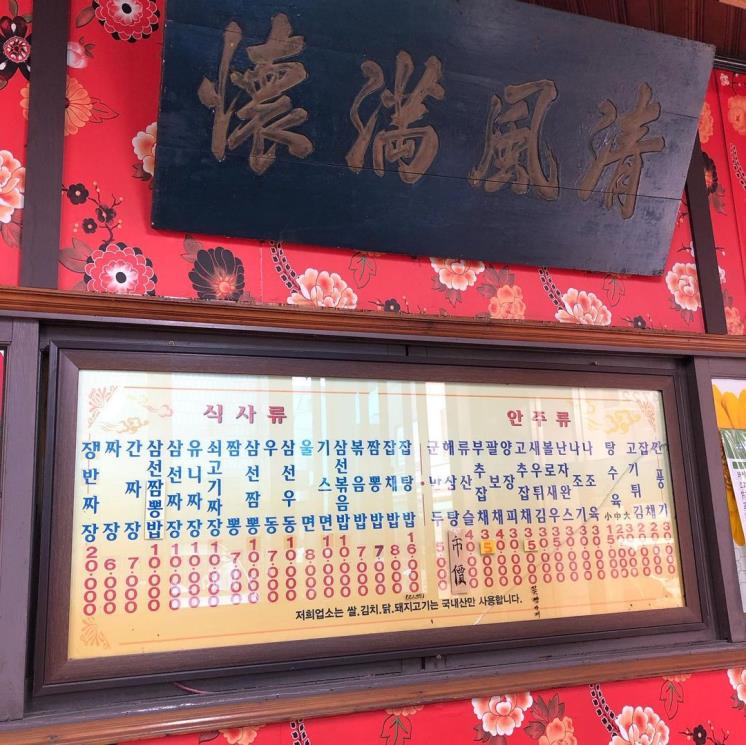 清風滿懷
식사류
쟁반짜장 20.000
짜장 6.000
간짜장 7.000
삼선짬뽕밥 10.000
삼선짜장 10.000
유니짜장
쇠고기짜장 10.000
짬뽕 7.000
삼선짬뽕 10.000
우동 7.000
삼선우동 10.000
울면 8.000
기스면 10.000
삼선볶음밥 10.000
볶음밥 7.000
짬뽕밥 7.000
잡채밥 8.000
잡탕밥 16.000
안주류
군만두 5.000
해삼탕 市價
류산슬
부추잡채
팔보채
양장피
고추잡채
새우튀김
난자완스
나조기
나조육
탕수육 小 中 大
고기튀김
잡채
깐풍기
저희업소는 쌀.김치.닭.돼지고기는 국내산만 사용합니다.